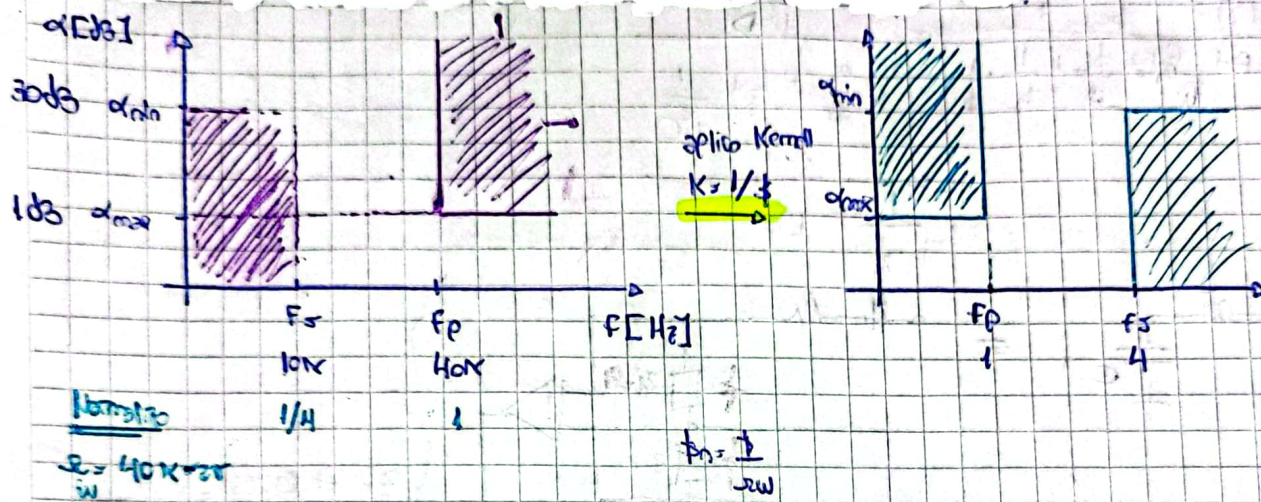 α[dB]
30dB αmin
1dB αmax
fs
fp
f[Hz]
10K
40K
Normalizo
1/4
1
Ωw = 40K·2π
aplico Kernel
K = 1/$
$n = $/Ωw
αmin
αmax
fp
fs
1
4